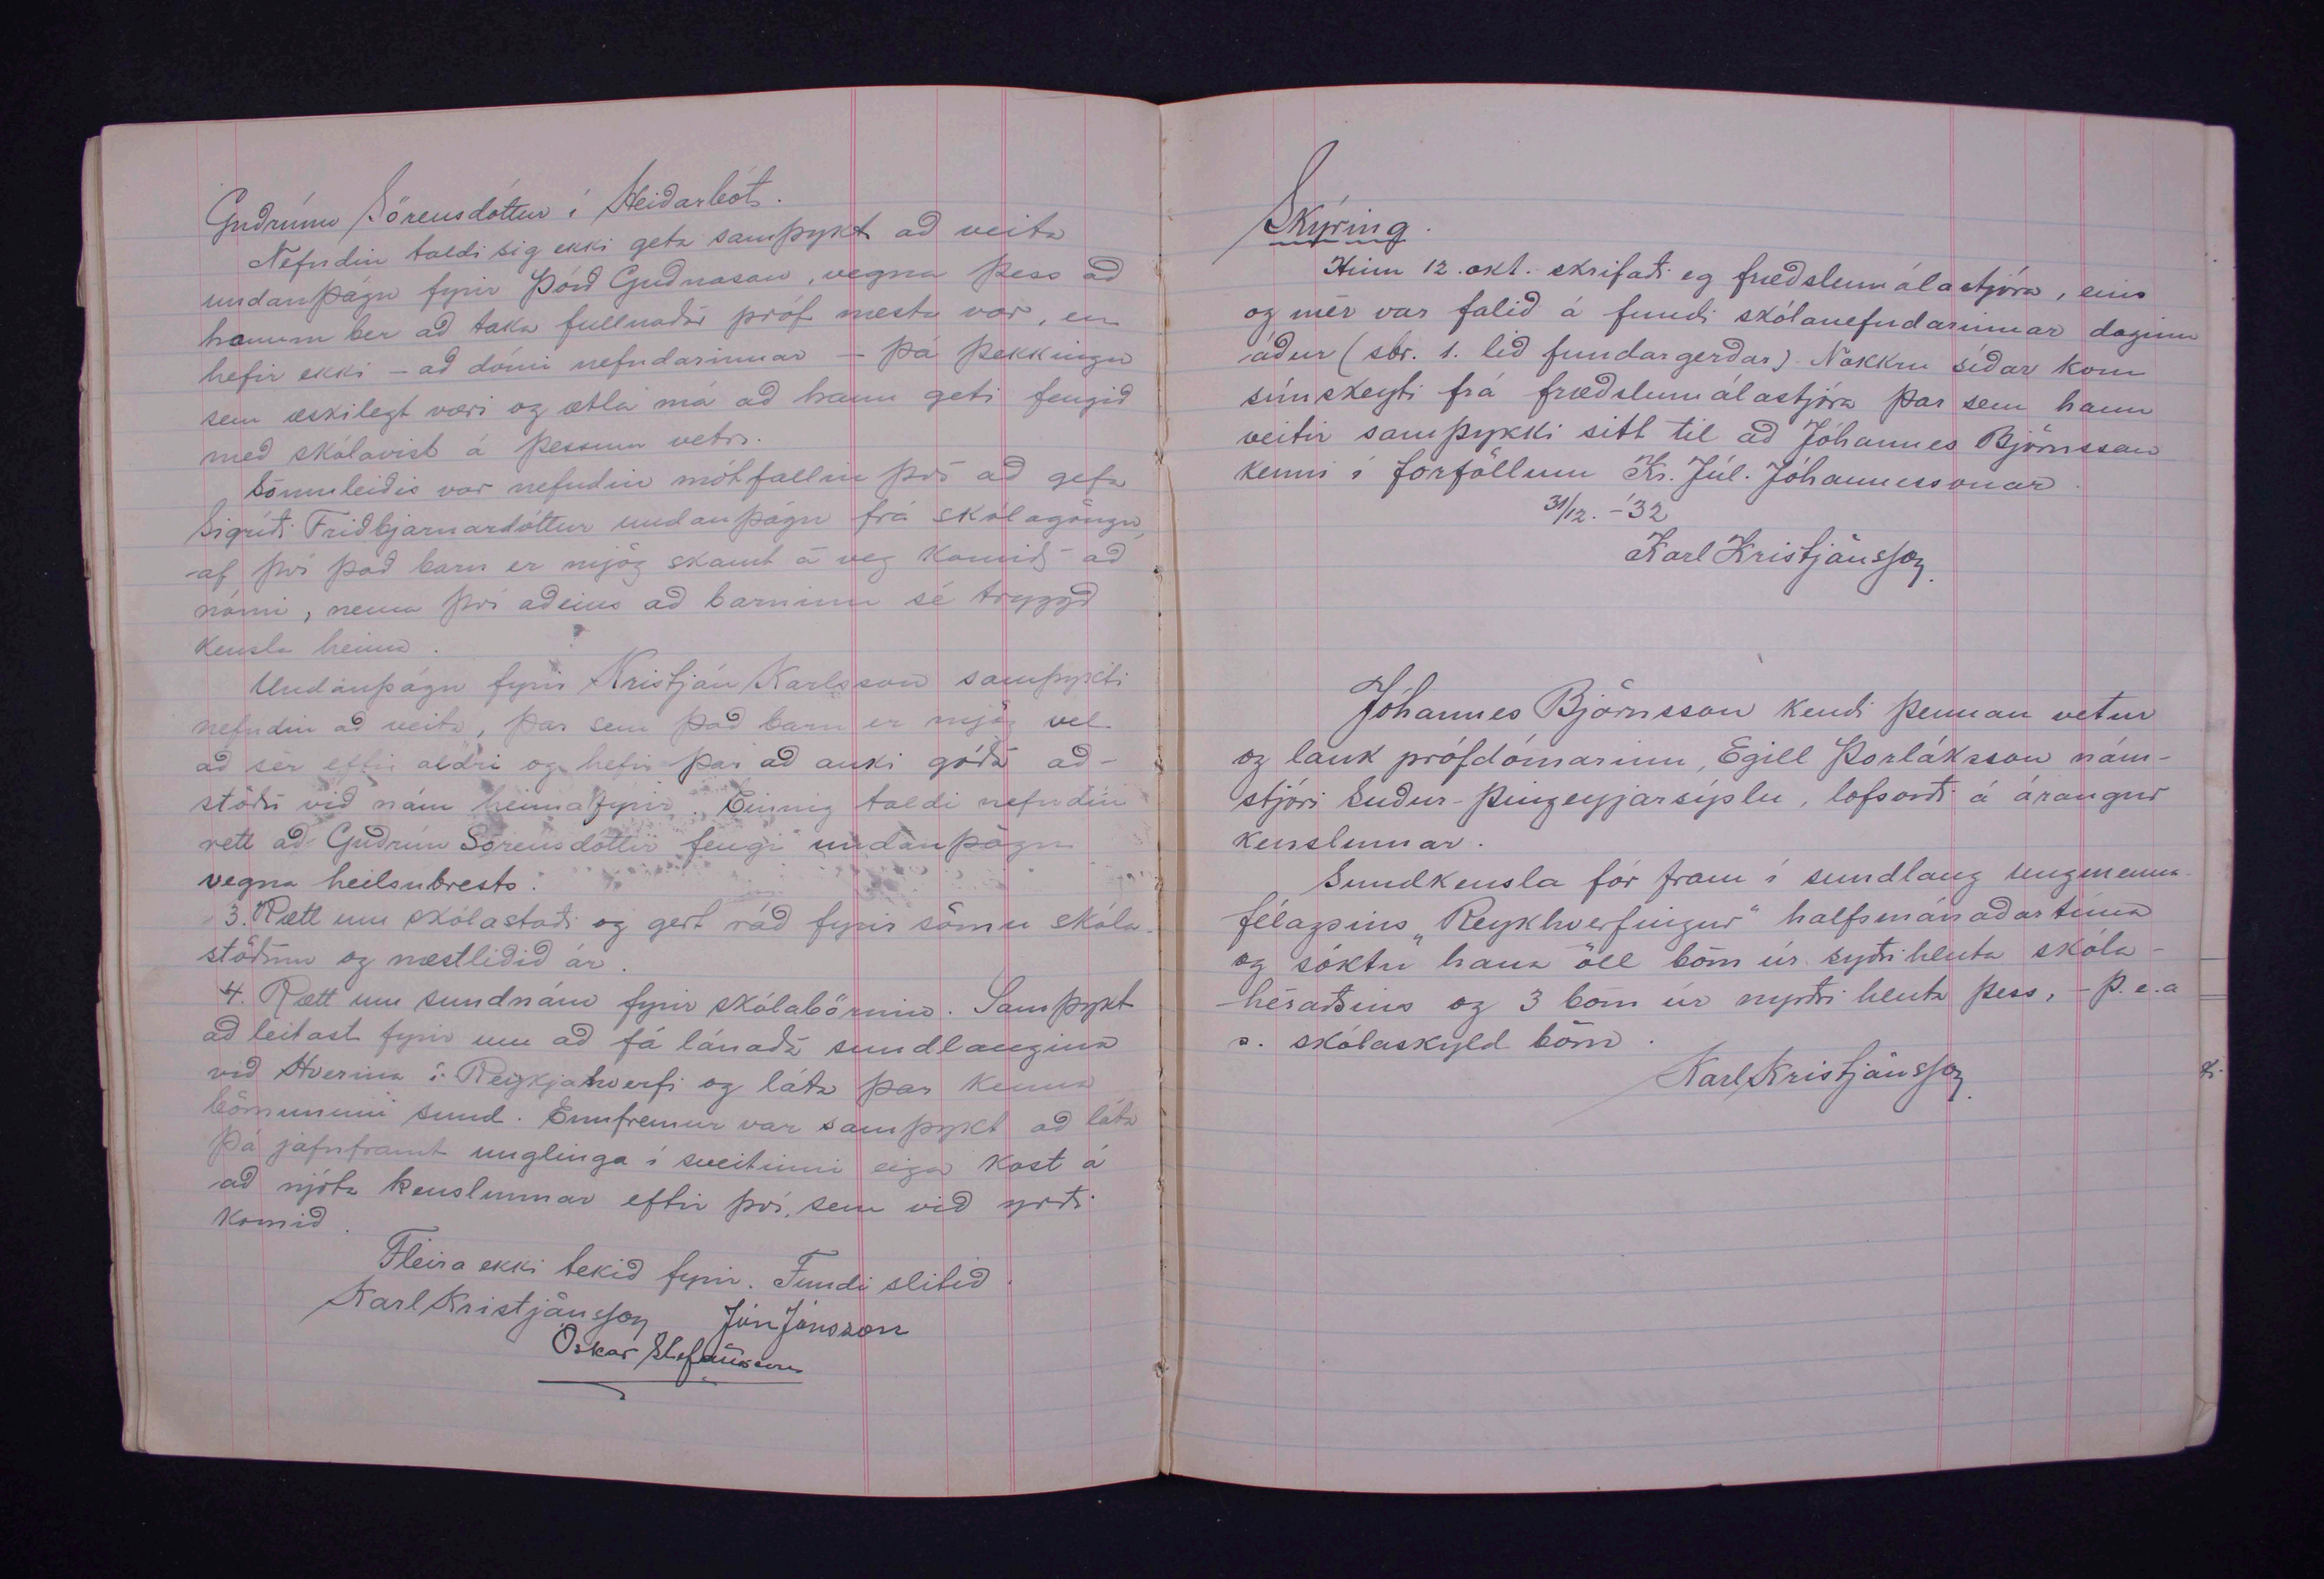 Guðrúnu Sörensdóttur í Heiðarbót.
Nefndin taldi sig ekki geta samþykt að veita
undanþágu fyrir Þórð Guðnason, vegna þess að
honum ber að taka fullnaðar próf næsta vor, en
hefir ekki - að dómi nefndarinnar - þá þekkingu
sem æskilegt væri og ætla má að hann geti fengið
með skólavist á þessum vetri.
Sömuleiðis var nefndin mótfallin því að gefa
Sigríði Friðbjarnardóttur undanþágu frá skólagöngu,
-af því það barn er mjög skamt á veg komið - að
námi, nema því aðeins að barninu sé tryggð
kensla heima.
Undanþágu fyrir Kristján Karlsson samþykti
nefndin að veita, þar sem það barn er mjög vel
að sér eftir aldri og hefir þar að auki góða að-
stöðu við nám heimafyrir. Einnig taldi nefndin
rétt að Guðrún Sörensdóttir fengi undanþágu
vegna heilsubrests.
3. Rætt um skólastaði og gert ráð fyrir sömu skóla-
stöðum og næstliðið ár.
4. Rætt um sundnám fyrir skólabörnin. Samþykt
að leitast fyrir um að fá lánaða sundlaugina
við Hverina í Reykjahverfi og láta þar kenna
börnunum sund. Ennfremur var samþykt að láta
þá jafnframt unglinga í sveitinni eiga kost á
að njóta kenslunnar eftir því, sem við yrði
komið.
Fleira ekki tekið fyrir. Fundi slitið.
Karl Kristjánsson Jón Jónsson
Óskar Stefánsson
Skýring.
Hinn 12. okt. skrifaði eg fræðslumálastjóra, eins
og mér var falið á fundi skólanefndarinnar daginn
áður (sbr. 1. lið fundargerðar). Nokkru síðar kom
símskeyti frá fræðslumálastjóra þar sem hann
veitir samþykki sitt til að Jóhannes Björnsson
kenni í forföllum Kr. Júl. Jóhannessonar.
31/12. -'32
Karl Kristjánsson.
Jóhannes Björnsson kendi þennan vetur
og lauk prófdómarinn, Egill Þorláksson nám-
stjóri Suður-Þingeyjarsýslu, lofsorði á árangur
kenslunnar.
Sundkensla fór fram í sundlaug Ungmenna-
félagsins „Reykhverfingur" halfsmánaðartíma
og sóktu hana öll börn úr syðri hluta skóla-
héraðsins og 3 börn úr nyrðri hluta þess, - þ.e.a
s. skólaskyld börn.
Karl Kristjánsson.